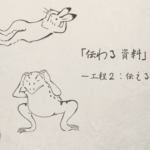 「伝わる資料」
―工程2：伝える